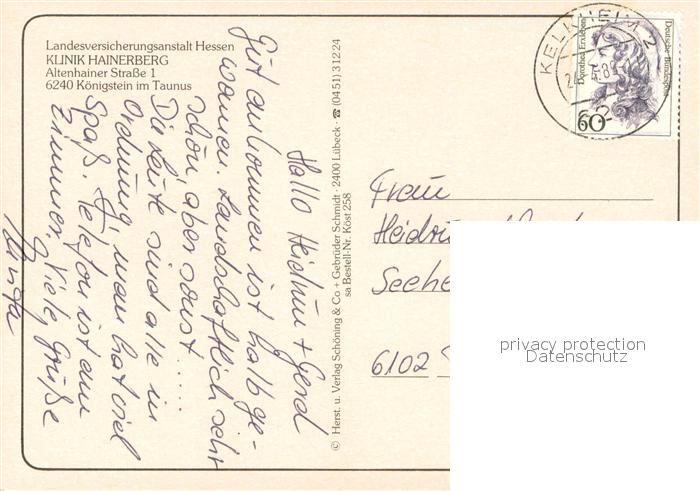 Landesversicherungsanstalt Hessen
KLINIK HAINERBERG
Altenhainer Straße 1
6240 Königstein im Taunus
Hallo Heidrun + Gerd
Gut ankommen ist halb ge-
wonnen. Landschaftlich sehr
schön, aber sonst .....
Die Leute sind alle in
Ordnung, man hat viel
Spaß. Telefon ist am
Zimmer. Viele Grüße
© Herst. u. Verlag Schöning & Co + Gebrüder Schmidt · 2400 Lübeck · ☎ (04 51) 3 12 24
sa Bestell-Nr. Köst 258
KELKHEIM 2
Dorothea Erxleben
Deutsche Bundespost
60
Frau
Seehe
6102
privacy protection
Datenschutz